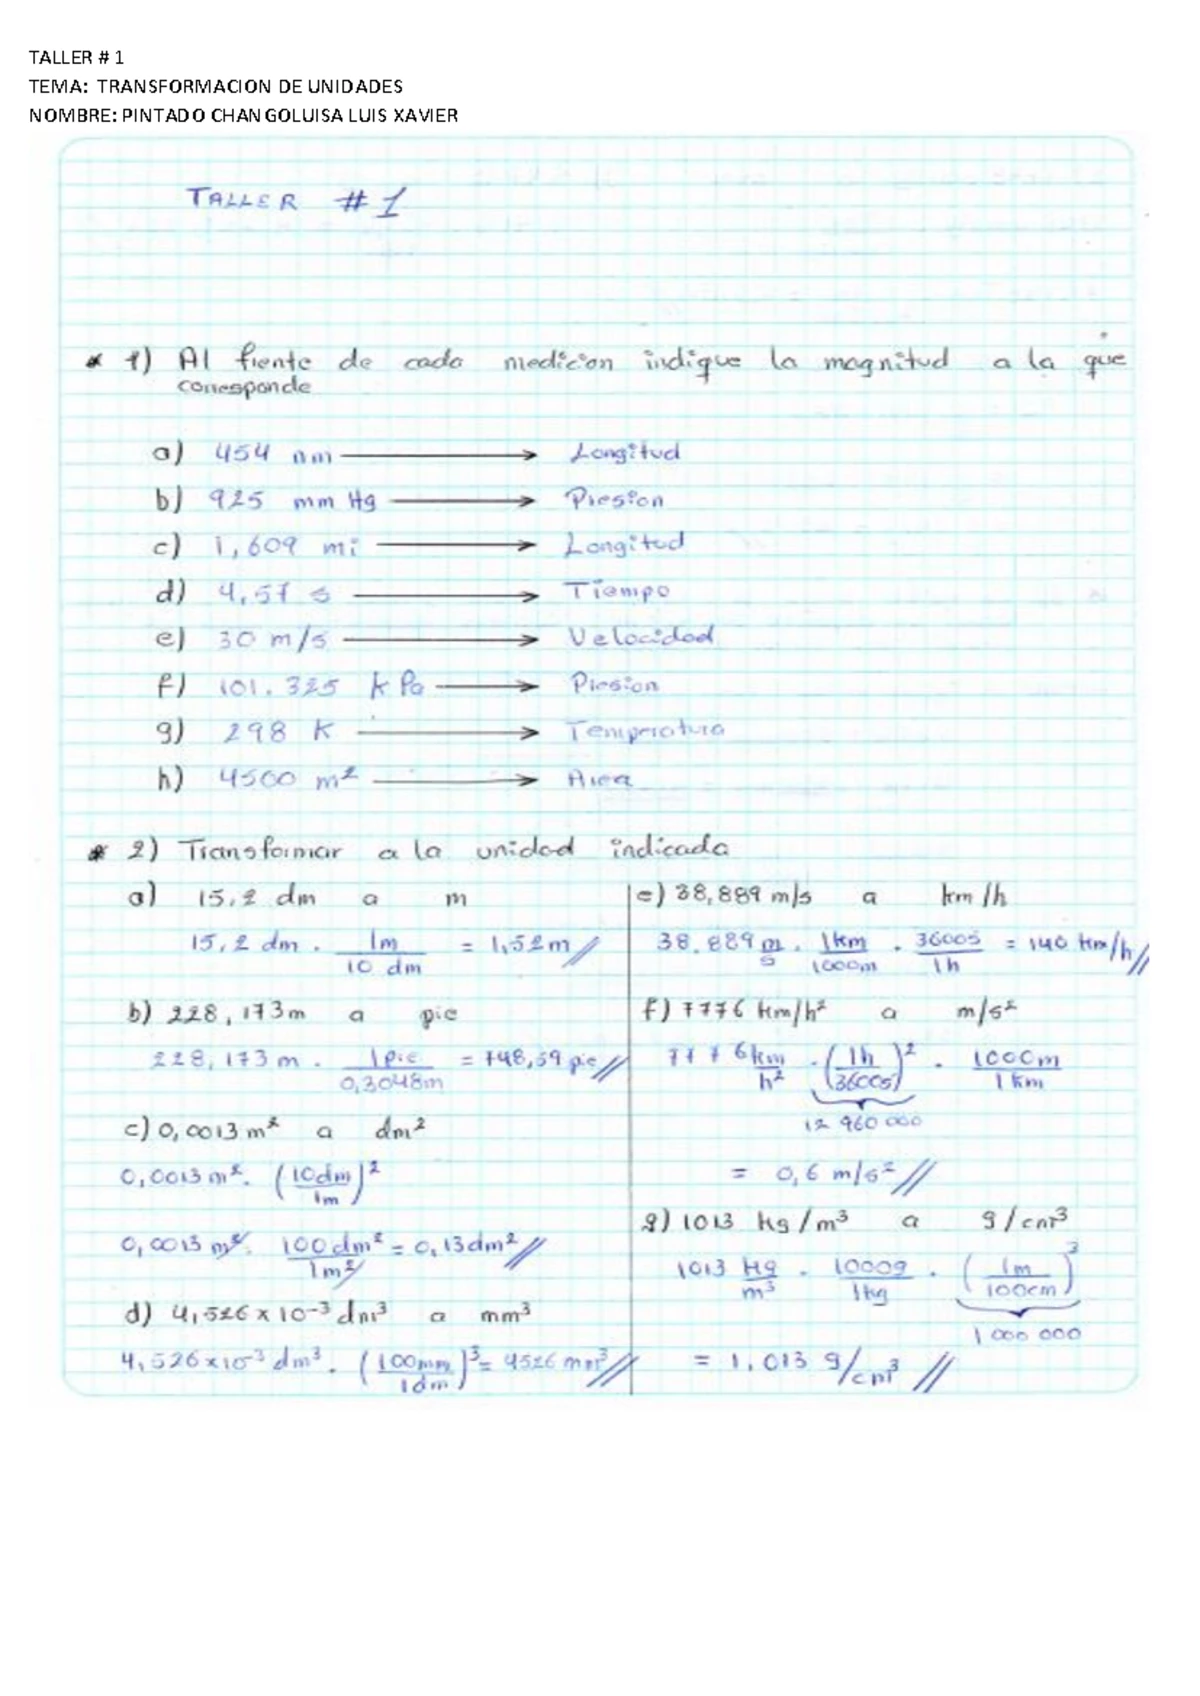 TALLER # 1
TEMA: TRANSFORMACION DE UNIDADES
NOMBRE: PINTADO CHANGOLUISA LUIS XAVIER
TALLER #1
* 1) Al frente de cada medicion indique la magnitud a la que
corresponde
a) 454 nm → Longitud
b) 925 mm Hg → Presion
c) 1,609 mi → Longitud
d) 4,57 s → Tiempo
e) 30 m/s → Velocidad
f) 101.325 kPa → Presion
g) 298 K → Temperatura
h) 4500 m² → Area
* 2) Transformar a la unidad indicada
a) 15,2 dm a m
15,2 dm . 1m / 10 dm = 1,52m //
b) 228,173m a pie
228,173 m . 1pie / 0,3048m = 748,59 pie //
c) 0,0013 m² a dm²
0,0013 m². (10dm / 1m)²
0,0013 m². 100dm² / 1m² = 0,13dm² //
d) 4,526 x 10⁻³ dm³ a mm³
4,526x10⁻³ dm³. (100mm / 1dm)³ = 4526 mm³ //
e) 38,889 m/s a km/h
38.889 m/s . 1km / 1000m . 3600s / 1h = 140 km/h //
f) 7776 km/h² a m/s²
7776 km / h² . (1h / 3600s)² . 1000m / 1km
12 960 000
= 0,6 m/s² //
g) 1013 kg/m³ a g/cm³
1013 kg / m³ . 1000g / 1kg . (1m / 100cm)³
1 000 000
= 1,013 g/cm³ //